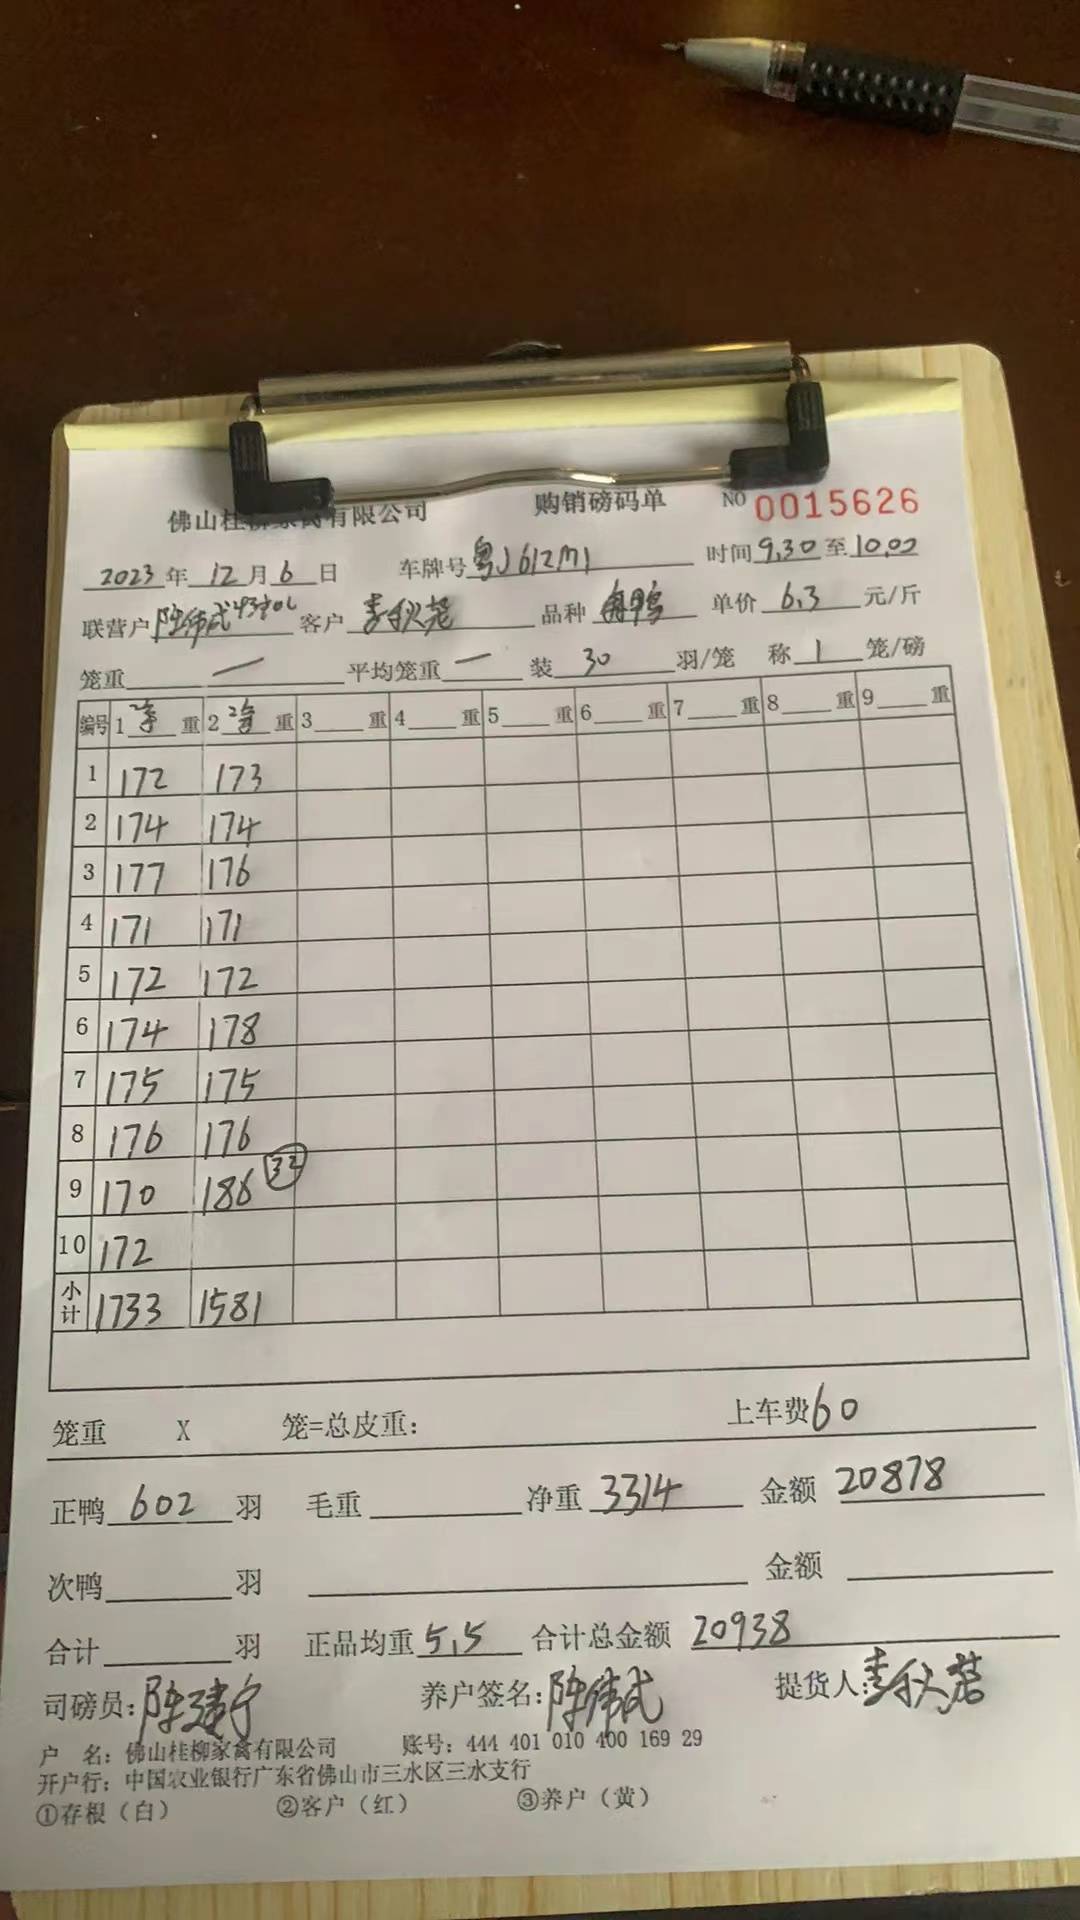 佛山桂柳家禽有限公司 购销磅码单 NO 0015626
2023年12月6日 车牌号粤J612M1 时间9,30至10,00
联营户陈伟武 客户李秋葵 品种 鸭 单价6,3元/斤
笼重 一 平均笼重 一 装 30 羽/笼 称 1 笼/磅
编号 1净重 2净重 3 重 4 重 5 重 6 重 7 重 8 重 9 重
1 172 173
2 174 174
3 177 176
4 171 171
5 172 172
6 174 178
7 175 175
8 176 176
9 170 186 32
10 172
小计 1733 1581
笼重 X 笼=总皮重： 上车费60
正鸭 602 羽 毛重 净重 3314 金额 20878
次鸭 羽 金额
合计 羽 正品均重 5,5 合计总金额 20938
司磅员：陈建宁 养户签名：陈伟武 提货人：李秋葵
户 名：佛山桂柳家禽有限公司 账号：444 401 010 400 169 29
开户行：中国农业银行广东省佛山市三水区三水支行
①存根（白） ②客户（红） ③养户（黄）